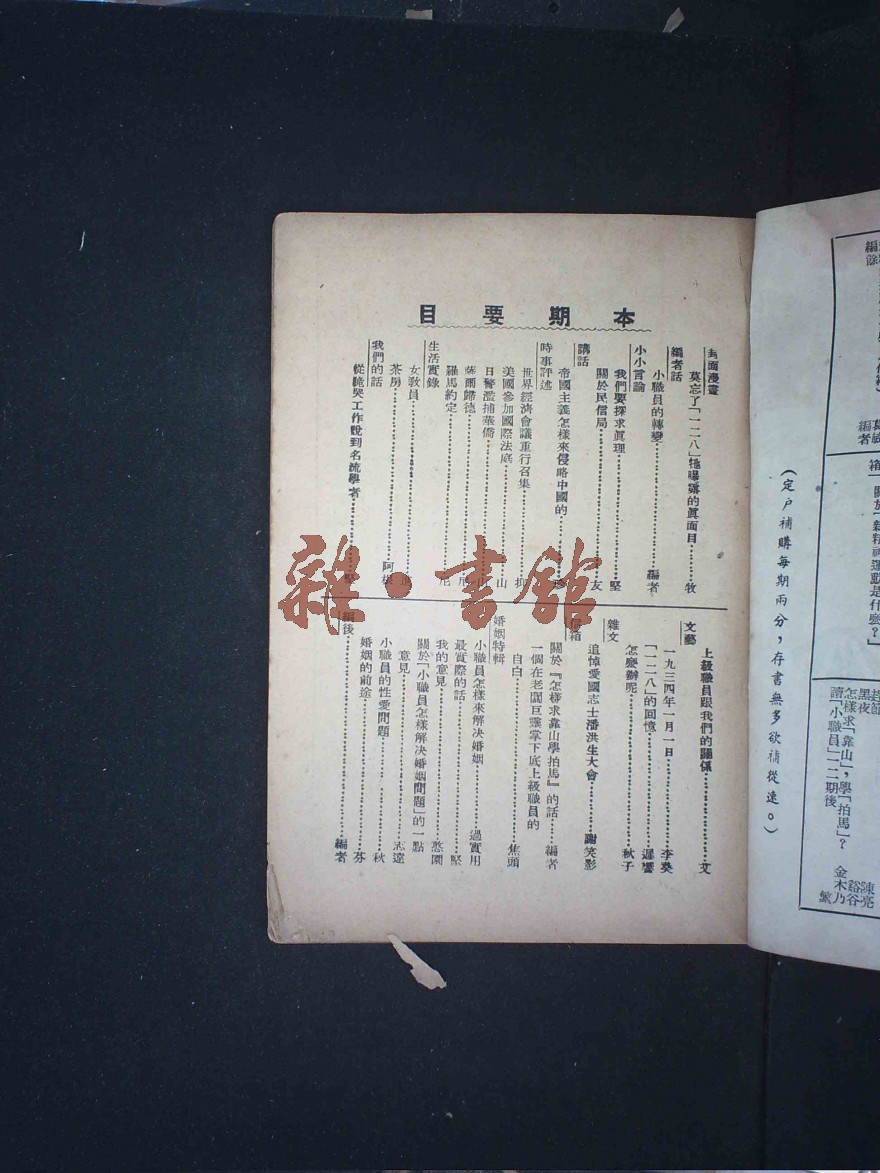 本期要目
封面漫畫
莫忘了「一二八」牠曝露的眞面目……牧
編者話
小職員的轉變……編者
小小言論
我們要探求眞理……堅
關於民信局……友
講話
帝國主義怎樣來侵略中國的……
時事評述
世界經濟會議重行召集……抑
美國參加國際法庭……山
日警濫捕華僑……山
薩爾歸德……尼
羅馬約定……尼
生活實錄
女教員……
茶房……阿根
我們的話
從跪哭工作說到名流學者……堅
文藝
上級職員跟我們的關係……艾
一九三四年一月一日……李葵
「一二八」的回憶……遲響
怎麼辦呢……秋子
雜文
追悼愛國志士潘洪生大會……謝笑影
信箱
關於『怎樣求靠山學拍馬』的話……編者
一個在老闆巨靈掌下底上級職員的
自白……焦頭
婚姻特輯
小職員怎樣來解决婚姻……過實用
最實際的話……堅
我的意見……憨園
關於「小職員怎樣解决婚姻問題」的一點
意見……志遠
小職員的性愛問題……秋
婚姻的前途……芬
編後……編者
雜·書館
編餘
編者
箱
關於「新精神運動是什麼？」
黑夜
怎樣求「靠山」，學「拍馬」？
讀「小職員」一二期後
陳亮
谿谷
金木乃
繁
（定戶補購每期兩分，存書無多欲補從速。）